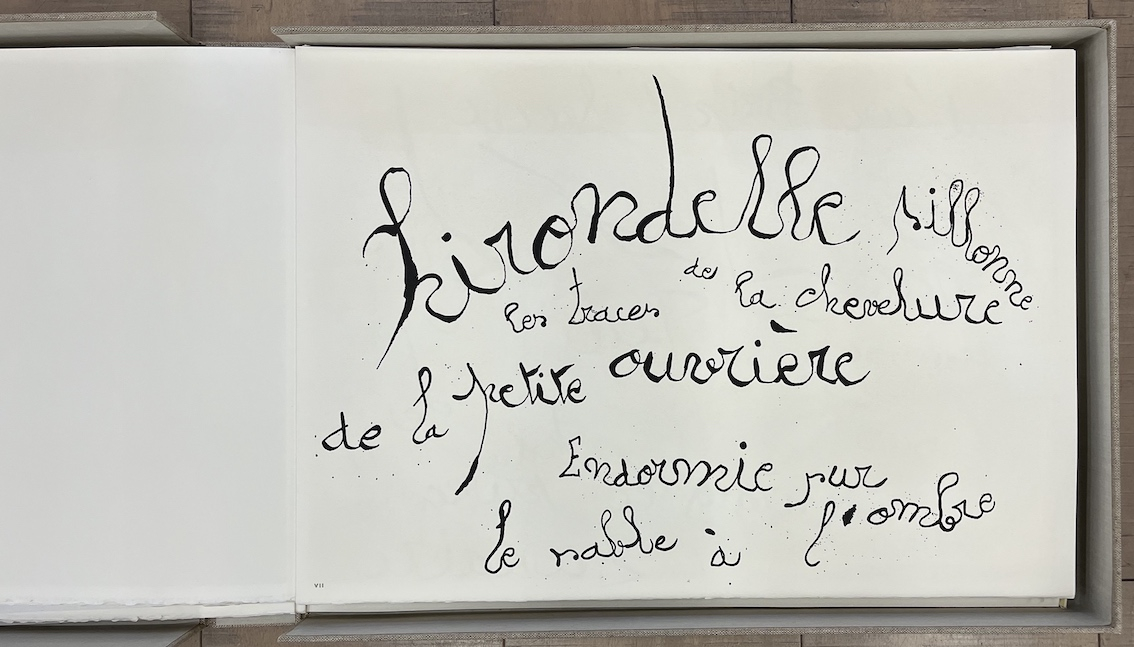 hirondelle sillonne
les traces de la chevelure
de la petite ouvrière
Endormie sur
le sable à l'ombre
VII